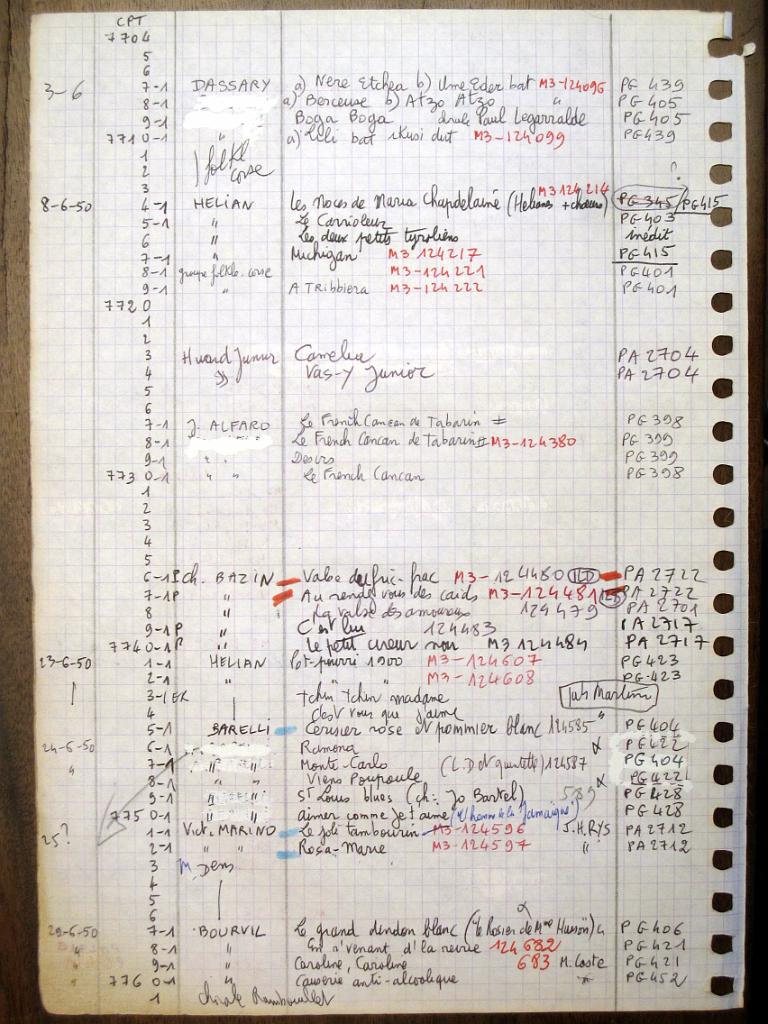 CPT
7704
5
6
3-6 7-1 DASSARY a) Nere Etchea b) Ume Eder bat M3-124096 PG 439
8-1 a) Berceuse b) Atzo Atzo " PG 405
9-1 Boga Boga Paul Legarralde PG 405
7710-1 " a) bat ikusi dut M3-124099 PG 439
1
2 folkl corse
3 M3 124214 ?
8-6-50 4-1 HELIAN Les Noces de Maria Chapdelaine (Helians + chœurs) PG 345 / PG 415
5-1 " Le Carrioleur PG 403
6 " Les deux petits tyroliens inédit
7-1 " Michigan M3 124217 PG 415
8-1 groupe folkl. corse M3-124221 PG 401
9-1 " A Tribbiera M3-124222 PG 401
7720
1
2
3 Huard Junior Camelia PA 2704
4 " Vas-y Junior PA 2704
5
6
7-1 J. ALFARO Le French Cancan de Tabarin # PG 398
8-1 Le French Cancan de Tabarin # M3-124380 PG 399
9-1 " " Desirs PG 399
7730-1 " " Le French Cancan PG 398
1
2
3
4
5
6-1P Ch. BAZIN Valse du fric-frac M3-124480 PA 2722
7-1P " Au rendez vous des caids M3-124481 PA 2722
8 " La valse des amoureux 124479 PA 2701
9-1P " C'est lui 124483 PA 2717
7740-1P " Le petit cireur noir M3 124484 PA 2717
23-6-50 1-1 HELIAN Pot-pourri 1900 M3-124607 PG 423
2-1 " " M3-124608 PG 423
3-1 tchin tchin madame
4 c'est vous que j'aime
5-1 BARELLI Cerisier rose et pommier blanc 124585 " PG 404
24-6-50 6-1 Ramona PG 422
" 7-1 " " Monte-Carlo (L.D et quintette) 124587 PG 404
8-1 " " Viens Poupoule PG 422
9-1 " St Louis blues (ch: Jo Bartel) 589 PG 428
7750-1 " aimer comme je t'aime (de la Jamaique) PG 428
25? 1-1 Vict. MARINO Le joli tambourin M3-124596 J.H. RYS PA 2712
2-1 " Rosa-Marie M3-124597 " PA 2712
3 M. Dens
4
5
6
29-6-50 7-1 BOURVIL Le grand dindon blanc (le Rosier de Mme Husson) PG 406
" 8-1 " En r'venant d'la revue 124682 PG 421
" 9-1 " Caroline, Caroline 683 M. Coste PG 421
" 7760-1 " Causerie anti-alcoolique PG 452
1 chorale Rambouillet